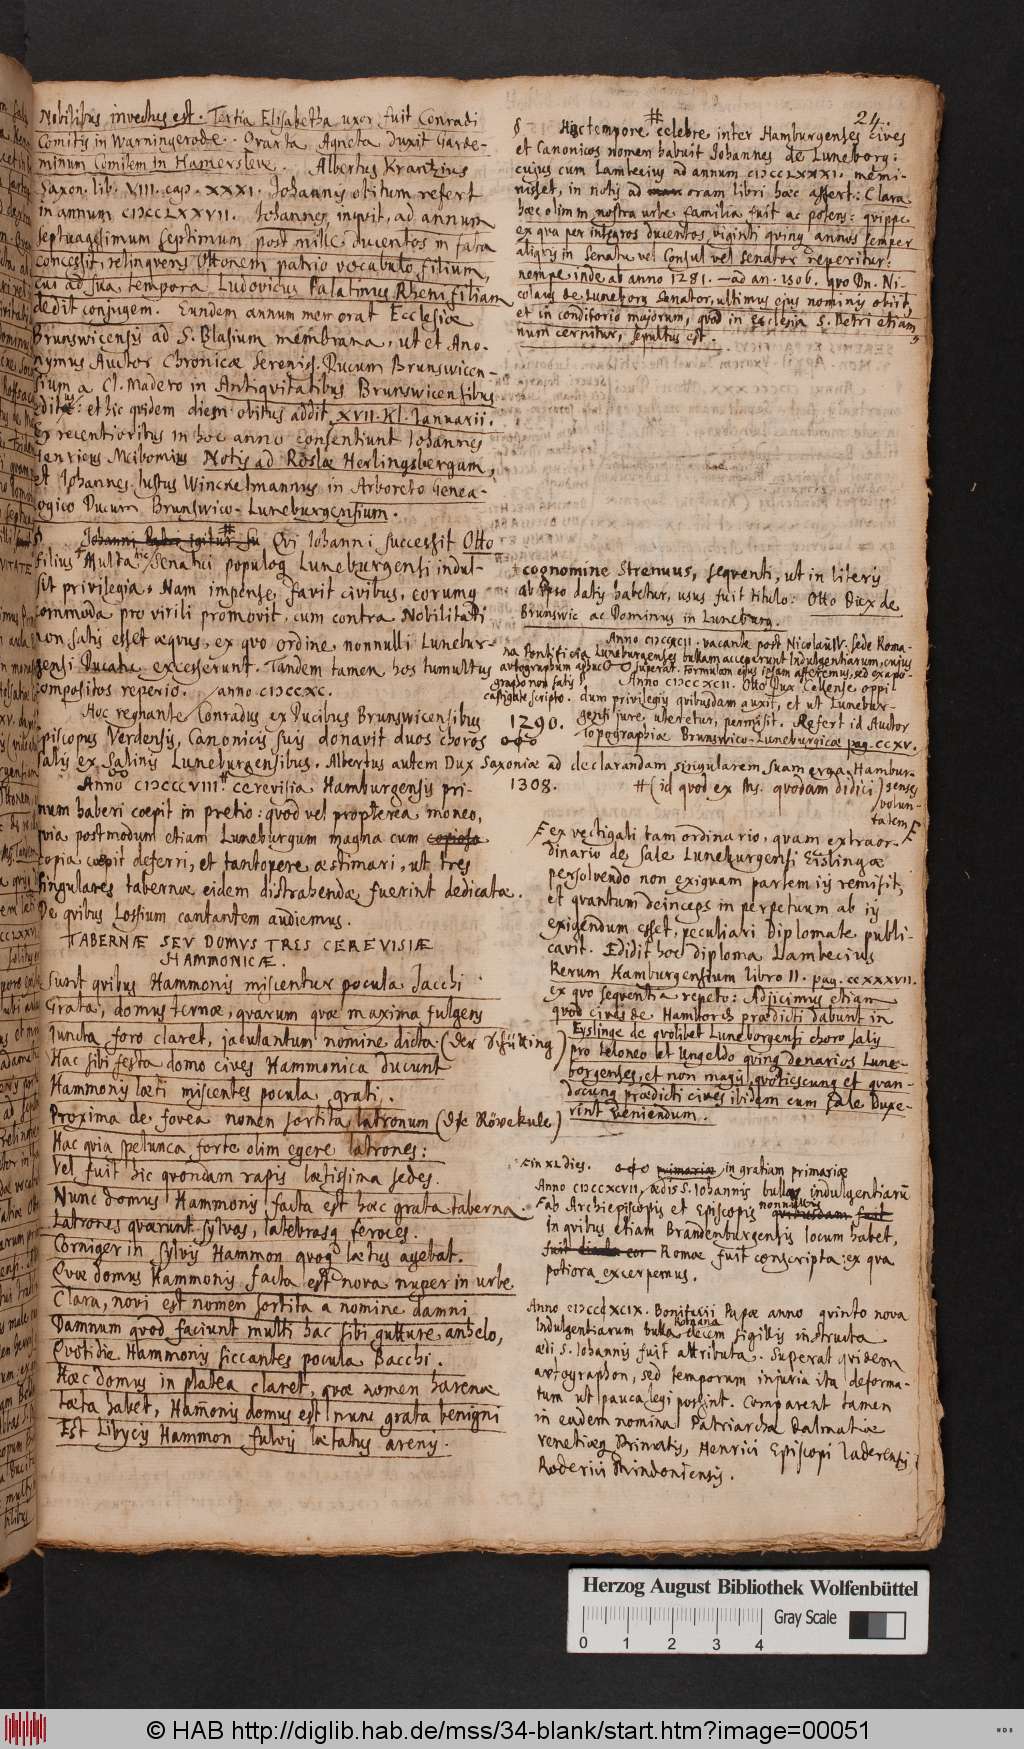 24.
Nobilibus invectus est. Tertia Elisabetha uxor fuit Conradi
Comitis in Warningerode. Qvarta Agneta duxit Garde-
minum Comitem in Hamersleve. Albertus Krantzius
Saxon. lib. VIII. cap. XXXI. Johannis obitum refert
in annum CIƆCCLXXVII. Johannes, inqvit, ad annum
septuagesimum septimum post mille ducentos in fata
concessit, relinqvens Ottonem patrio vocabulo filium,
cui ad sua tempora Ludovicus Palatinus Rheni filiam
dedit conjugem. Eundem annum memorat Ecclesiæ
Brunswicensis ad S. Blasium membrana, ut et Ano-
nymus Auctor Chronicæ Sereniss. Ducum Brunswicen-
sium a Cl. Madero in Antiqvitatibus Brunswicensibus
editus: et hic qvidem diem obitus addit XVII. Kl. Januarii.
Ex recentioribus in hoc anno consentiunt Johannes
Henricus Meibomius Notis ad Roslæ Herlingsbergam,
et Johannes Justus Winckelmannus in Arboreto Genea-
logico Ducum Brunswico-Luneburgensium.
Qvi Johanni successit Otto
filius Multa hic Senatui populoq Luneburgensi indul-
sit privilegia. Nam impense favit civibus, eorumq
commoda pro virili promovit, cum contra Nobilitati
non satis esset æqvus, ex qvo ordine nonnulli Lunebur-
gensi Ducatu excesserunt. Tandem tamen hos tumultus
compositos reperio. anno CIƆCCXC.
Hoc regnante Conradus ex Ducibus Brunswicensibus
Episcopus Verdensis, Canonicis suis donavit duos choros
salis ex Salinis Luneburgensibus. Albertus autem Dux Saxoniæ ad declarandam singularem suam erga Hambur-
Anno CIƆCCCVIII # cerevisia Hamburgensis pri-
mum haberi coepit in pretio: qvod vel propterea moneo,
qvia postmodum etiam Luneburgum magna cum copiosa
copia coepit deferri, et tantopere æstimari, ut tres
singulares tabernæ eidem distrahendæ fuerint dedicatæ.
De qvibus Lossium cantantem audiemus.
TABERNÆ SEV DOMVS TRES CEREVISIÆ
HAMMONICÆ.
Sunt qvibus Hammonis miscentur pocula Jacchi
Grata, domus ternæ, qvarum qvæ maxima fulgens
Juncta foro claret, jaculantum nomine dicta (der Schütting)
Hac sibi festa domo cives Hammonica ducunt
Hammonis læti miscentes pocula grati.
Proxima de fovea nomen sortita latronum (die Rövekule)
Hac qvia spelunca forte olim egere latrones:
Vel fuit hic qvondam rapis lætissima sedes.
Nunc domus Hammonis facta est hæc grata taberna
Latrones qværunt sylvas, latebrasq feroces.
Corniger in sylvis Hammon qvoq lætus agebat.
Qvæ domus Hammonis facta est nova nuper in urbe
Clara, novi est nomen sortita a nomine damni
Damnum qvod faciunt multi hac sibi gutture anhelo,
Qvotidie Hammonis siccantes pocula Bacchi.
Hæc domus in platea claret, qvæ nomen harenæ
Læta habet, Ham̄onis domus est nunc grata benigni
Est Libycis Hammon fulvis lætatus arenis.
§ Hoc tempore # celebre inter Hamburgenses cives
et Canonicos nomen habuit Johannes de Luneborg:
cujus cum Lambecius ad annum CIƆCCLXXXI. memi-
nisset, in notis ad oram libri hæc affert: Clara
hæc olim in nostra urbe familia fuit ac potens: qvippe
ex qva per integros ducentos viginti qvinq annos semper
aliqvis in Senatu vel Consul vel Senator reperitur:
nempe inde ab anno 1281. — ad an. 1506. qvo Dn. Ni-
colaus de Luneborg Senator, ultimus ejus nominis obiit,
et in conditorio majorum, qvod in Ecclesia S. Petri etiam
num cernitur, sepultus est.
† cognomine Strenuus, seqventi, ut in literis
ab ipso datis habetur, usus fuit titulo: Otto Dux de
Brunswic ac Dominus in Luneburg.
Anno CIƆCCXCII. vacante post Nicolaū IV. sede Roma-
na Pontificia Luneburgenses bullam acceperunt Indulgentiarum, cujus
avtographum adhuc superat. Formulam ejus ipsam afferemus, sed ex apo-
grapho non satis
castigate scripto.
Anno CIƆCCXCII. Otto Dux Cellense oppi-
dum privilegiis qvibusdam auxit, et ut Lunebur-
gensi jure uteretur, permisit. Refert id Auctor
Topographiæ Brunswico-Luneburgicæ pag. CCXV.
1290.
1308.
#(id qvod ex Ms. qvodam didici)
genses
volun-
tatem F
F ex vectigali tam ordinario, qvam extraor-
dinario de sale Luneburgensi Eislingæ
persolvendo non exiguam partem iis remisit,
et qvantum deinceps in perpetuum ab iis
exigendum esset, peculiari Diplomate publi-
cavit. Edidit hoc diploma Lambecius
Rerum Hamburgensium Libro II. pag. CCXXXVII.
ex qvo seqventia repeto: Adjicimus etiam
qvod cives de Hamborch prædicti dabunt in
Eyslinge de qvolibet Luneborgensi choro salis
pro teloneo et Ungeldo qvinq denarios Lune-
borgenses, et non magis, qvotiescunq et qvan-
docunq prædicti cives ibidem cum sale duxe-
rint veniendum.
in XL dies. primariæ in gratiam primariæ
Anno CIƆCCXCVII. ædis S. Johannis bulla indulgentiarū
ab Archiepiscopis et Episcopis nonnullis qvibusdam fuit
in qvibus etiam Brandenburgensis locum habet,
Romæ fuit conscripta: ex qva
potiora excerpemus.
Anno CIƆCCXCIX. Bonifacii Papæ anno qvinto nova
Indulgentiarum bulla Romana decem sigillis instructa
ædi S. Johannis fuit attributa. Superat qvidem
avtographon, sed temporum injuria ita deforma-
tum ut pauca legi possint. Comparent tamen
in eadem nomina Patriarchæ Dalmatiæ
Venetiæq Primatis, Henrici Episcopi Jaderensis,
Roderici Mindoniensis.
Herzog August Bibliothek Wolfenbüttel
0 1 2 3 4
Gray Scale
© HAB http://diglib.hab.de/mss/34-blank/start.htm?image=00051
HAB